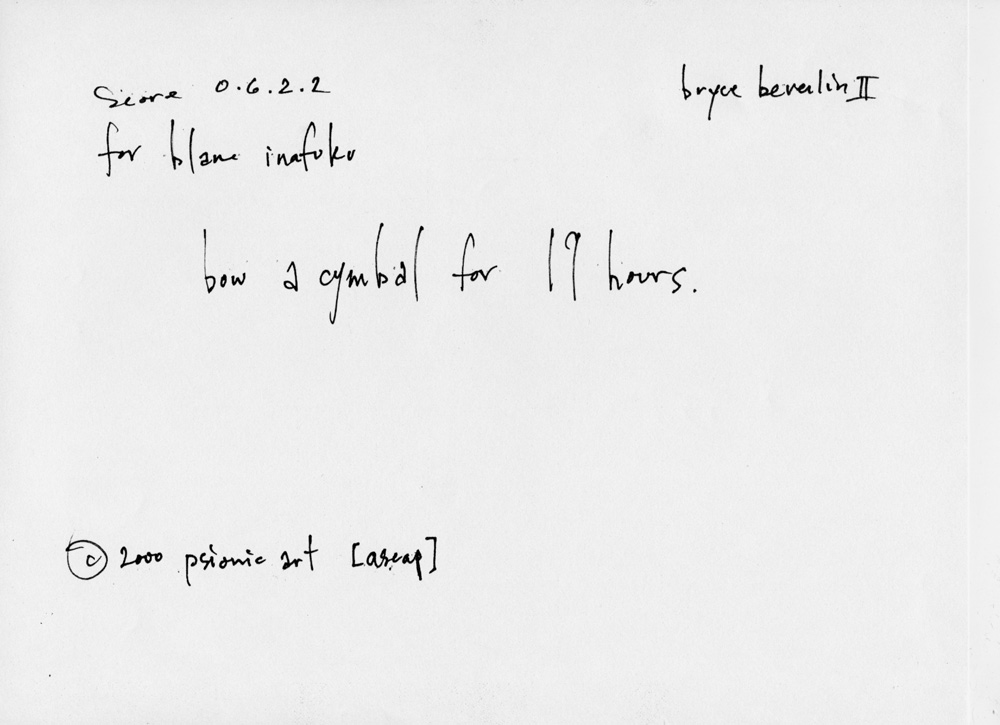 score 0.6.2.2
bryce beverlin II
for blane inafuku
bow a cymbal for 19 hours.
© 2000 psionic art [ascap]